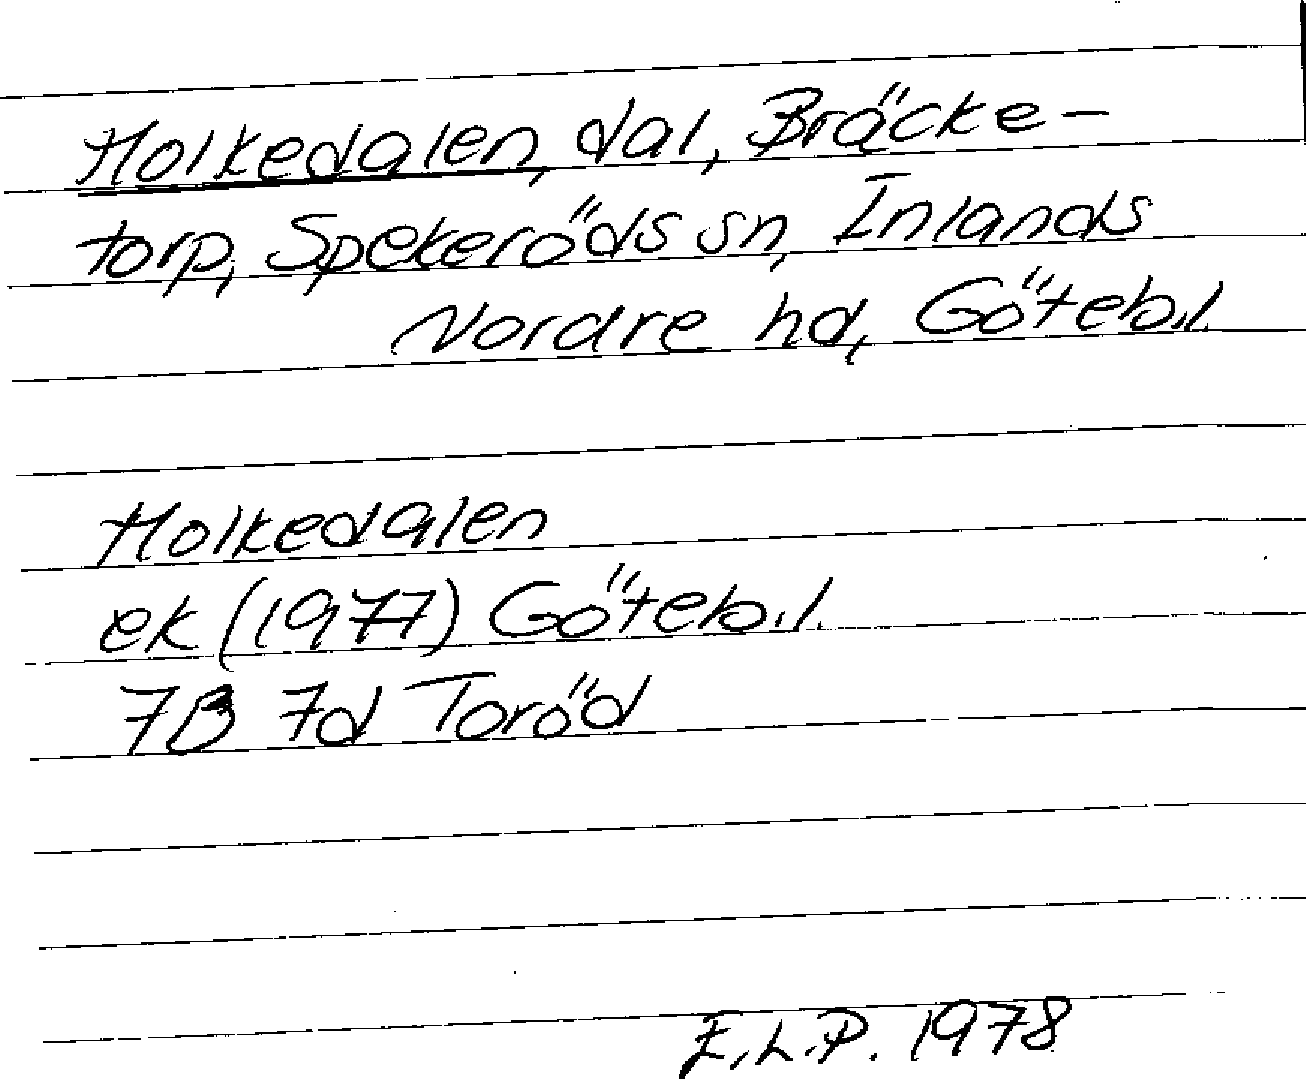 Holkedalen, dal, Bräcke-
torp, Spekeröds sn, Inlands
Nordre hd, Göteb.l.
Holkedalen
ek (1977) Göteb.l.
7B 7d Toröd
E.L.P. 1978